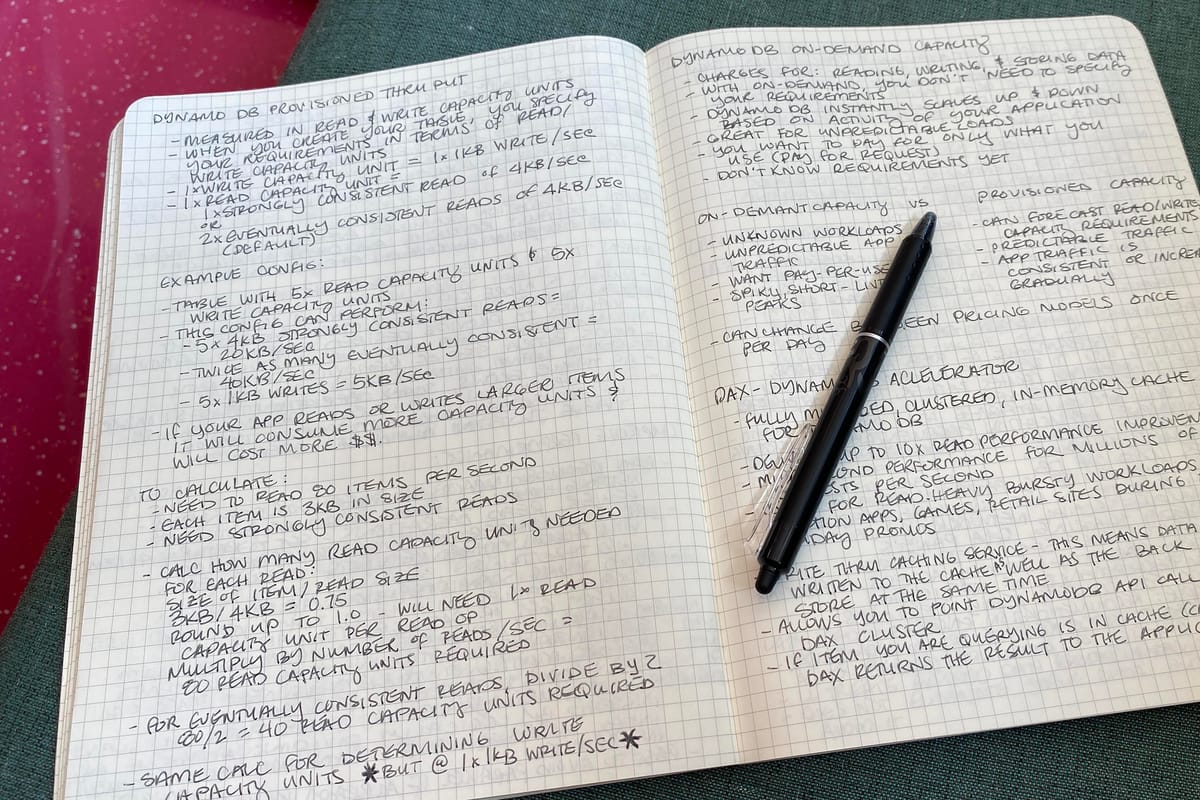 DYNAMO DB PROVISIONED THRUPUT
- MEASURED IN READ & WRITE CAPACITY UNITS
- WHEN YOU CREATE YOUR TABLE, YOU SPECIFY
YOUR REQUIREMENTS IN TERMS OF READ/
WRITE CAPACITY UNITS
- 1x WRITE CAPACITY UNIT = 1x 1KB WRITE/SEC
- 1x READ CAPACITY UNIT =
1x STRONGLY CONSISTENT READ OF 4KB/SEC
OR
2x EVENTUALLY CONSISTENT READS OF 4KB/SEC
(DEFAULT)
EXAMPLE CONFIG:
- TABLE WITH 5x READ CAPACITY UNITS & 5x
WRITE CAPACITY UNITS
- THIS CONFIG CAN PERFORM:
- 5x 4KB STRONGLY CONSISTENT READS =
20KB/SEC
- TWICE AS MANY EVENTUALLY CONSISTENT =
40KB/SEC
- 5x 1KB WRITES = 5KB/SEC
- IF YOUR APP READS OR WRITES LARGER ITEMS
IT WILL CONSUME MORE CAPACITY UNITS &
WILL COST MORE $$.
TO CALCULATE:
- NEED TO READ 80 ITEMS PER SECOND
- EACH ITEM IS 3KB IN SIZE
- NEED STRONGLY CONSISTENT READS
- CALC HOW MANY READ CAPACITY UNITS NEEDED
FOR EACH READ:
SIZE OF ITEM/READ SIZE
3KB/4KB = 0.75
ROUND UP TO 1.0 - WILL NEED 1x READ
CAPACITY UNIT PER READ OP
MULTIPLY BY NUMBER OF READS/SEC =
80 READ CAPACITY UNITS REQUIRED
- FOR EVENTUALLY CONSISTENT READS, DIVIDE BY 2
80/2 = 40 READ CAPACITY UNITS REQUIRED
- SAME CALC FOR DETERMINING WRITE
CAPACITY UNITS *BUT @ 1x 1KB WRITE/SEC*
DYNAMO DB ON-DEMAND CAPACITY
- CHARGES FOR: READING, WRITING, & STORING DATA
- WITH ON-DEMAND, YOU DON'T NEED TO SPECIFY
YOUR REQUIREMENTS
- DYNAMO DB INSTANTLY SCALES UP & DOWN
BASED ON ACTIVITY OF YOUR APPLICATION
- GREAT FOR UNPREDICTABLE LOADS
- YOU WANT TO PAY FOR ONLY WHAT YOU
USE (PAY FOR REQUEST)
- DON'T KNOW REQUIREMENTS YET
ON-DEMANT CAPACITY VS PROVISIONED CAPACITY
- UNKNOWN WORKLOADS
- UNPREDICTABLE APP
TRAFFIC
- WANT PAY-PER-USE
- SPIKY, SHORT-LIV
PEAKS
- CAN FORECAST READ/WRITE
CAPACITY REQUIREMENTS
- PREDICTABLE TRAFFIC
- APP TRAFFIC IS
CONSISTENT OR INCREA
GRADUALLY
- CAN CHANGE BE EEN PRICING MODELS ONCE
PER DAY
DAX - DYNAM ACLLERATOR
- FULLY M ED, CLUSTERED, IN-MEMORY CACHE
FOR MO DB
- UP TO 10x READ PERFORMANCE IMPROVEM
- OND PERFORMANCE FOR MILLIONS OF
STS PER SECOND
- FOR READ-HEAVY, BURSTY WORKLOADS
TION APPS, GAMES, RETAIL SITES DURING
DAY PROMOS
RITE THRU CACHING SERVICE - THIS MEANS DATA
WRITTEN TO THE CACHE AS WELL AS THE BACK
STORE AT THE SAME TIME
- ALLOWS YOU TO POINT DYNAMODB API CALL
DAX CLUSTER
- IF ITEM YOU ARE QUERYING IS IN CACHE
DAX RETURNS THE RESULT TO THE APPLIC